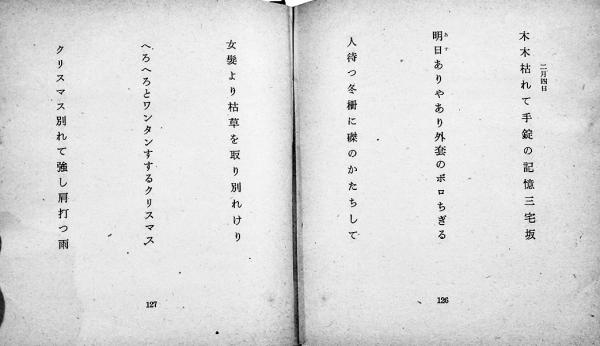 二月四日
木木枯れて手錠の記憶三宅坂
明日ありやあり外套のボロちぎる
あす
人待つ冬柵に磔のかたちして
126
女髪より枯草を取り別れけり
へろへろとワンタンすするクリスマス
クリスマス別れて強し肩打つ雨
127